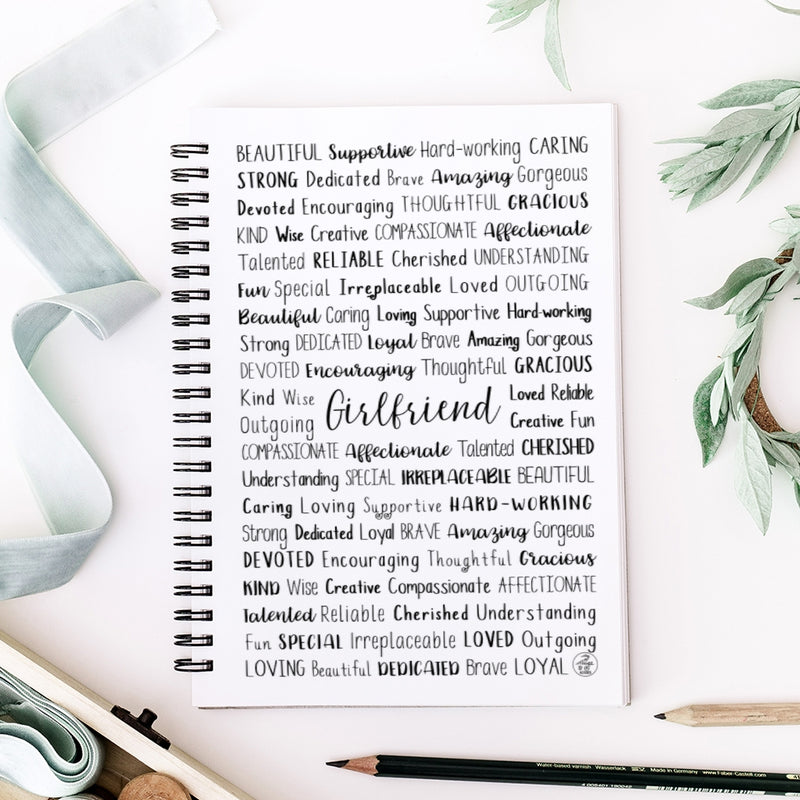 BEAUTIFUL Supportive Hard-working CARING
STRONG Dedicated Brave Amazing Gorgeous
Devoted Encouraging THOUGHTFUL GRACIOUS
KIND Wise Creative COMPASSIONATE Affectionate
Talented RELIABLE Cherished UNDERSTANDING
Fun Special Irreplaceable Loved OUTGOING
Beautiful Caring Loving Supportive Hard-working
Strong DEDICATED Loyal Brave Amazing Gorgeous
DEVOTED Encouraging Thoughtful GRACIOUS
Kind Wise
Outgoing
Girlfriend
Loved Reliable
Creative Fun
COMPASSIONATE Affectionate Talented CHERISHED
Understanding SPECIAL IRREPLACEABLE BEAUTIFUL
Caring Loving Supportive HARD-WORKING
Strong Dedicated Loyal BRAVE Amazing Gorgeous
DEVOTED Encouraging Thoughtful Gracious
KIND Wise Creative Compassionate AFFECTIONATE
Talented Reliable Cherished Understanding
Fun SPECIAL Irreplaceable LOVED Outgoing
LOVING Beautiful DEDICATED Brave LOYAL
Water-based varnish Wasserlack Made in Germany www.Faber-Castell.com